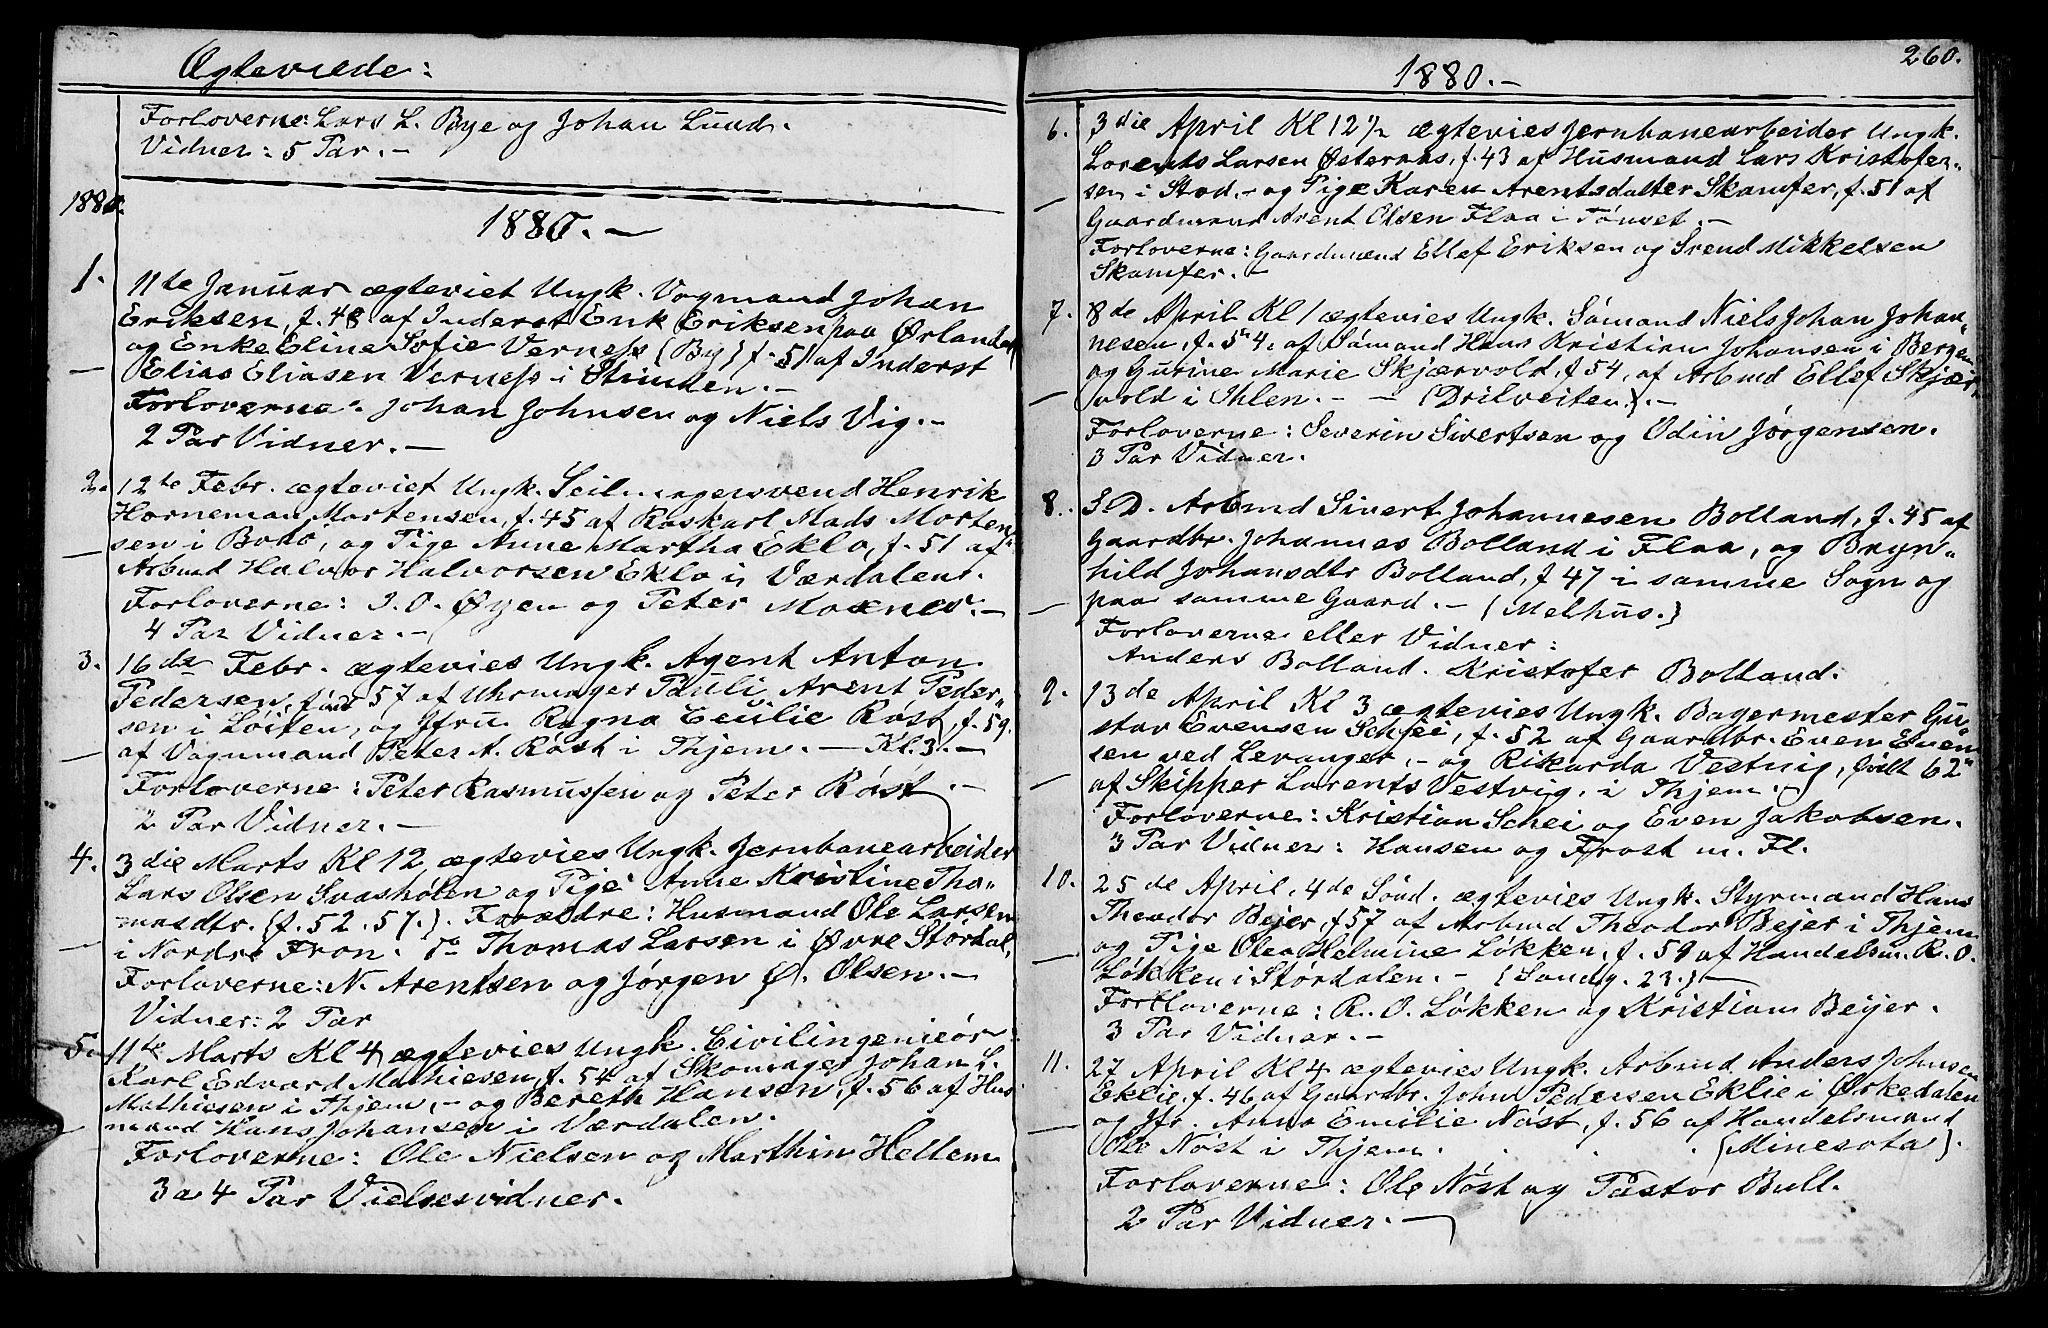 Ægteviede:
Forloverne: Lars L. Bye og Johan Lund.
Vidner: 5 Par. -
1880.
1880. -
1. 11te Januar ægteviet Ungk. Vogmand Johan
Eriksen, f. 48 af Inderst Erik Eriksen paa Ørlandet
og Enke Eline Sofie Verness (By) f. 51 af Inderst
Elias Eliasen Verness i Strinden. -
Forloverne: Johan Johnsen og Niels Vig. -
2 Par Vidner. -
2. 12te Febr. ægteviet Ungk. Seilmagersvend Henrik
Horneman Mortensen, f. 45 af Raskarl Mads Morten-
sen i Bodø, og Pige Anne Martha Eklo, f. 51 af
Arbmd Halvor Halvorsen Eklo i Værdalen.
Forloverne: I. O. Øyen og Peter Moxnes. -
4 Par Vidner. -
3. 16de Febr. ægtevies Ungk. Agent Anton
Pedersen, født 57 af Uhrmager Pauli Arent Peder-
sen i Løiten, og Jfru Ragna Cecilie Røst, f. 59.
af Vognmand Peter A. Røst i Thjem. - Kl. 3. -
Forloverne: Peter Rasmussen og Peter Røst. -
2 Par Vidner. -
4. 3die Marts Kl 12 ægtevies Ungk. Jernbanearbeider
Lars Olsen Svashølen og Pige Anne Kristine Tho-
masdtr. (f. 52. 57.). Forældre: Husmand Ole Larsen
i Nordre Fron. Do Thomas Larsen i Øvre Størdal.
Forloverne: N. Arentsen og Jørgen Ø. Olsen. -
Vidner: 2 Par
5. 11te Marts Kl 4 ægtevies Ungk. Civilingenieør
Karl Edvard Mathiesen, f. 54 af Skomager Johan L.
Mathiesen i Thjem, - og Bereth Hansen, f. 56 af Hus
mand Hans Johansen i Værdalen.
Forloverne: Ole Nielsen og Marthin Hellem
3 a 4 Par Vielsesvidner.
260.
1880. -
6. 3die April Kl 12½ ægtevies Jernbanearbeider Ungk.
Lorents Larsen Østeraas, f. 43 af Husmand Lars Kristofer-
sen i Stod, - og Pige Karen Arentsdatter Skamfer, f. 51 af
Gaardmand Arent Olsen Flaa i Tønset. -
Forloverne: Gaardmænd Ellef Eriksen og Svend Mikkelsen
Skamfer. -
7. 8de April Kl 1 ægtevies Ungk. Sømand Niels Johan Johan-
nesen, f. 54, af Sømand Hans Kristian Johansen i Bergen
og Gurine Marie Skjærvold, f 54, af Arbmd Ellef Skjær-
vold i Ihlen. - - (Drilveiten). -
Forloverne: Severin Sivertsen og Odin Jørgensen.
3 Par Vidner.
8. S. D. Arbmd Sivert Johannesen Bolland, f. 45 af
Gaardbr. Johannes Bolland i Flaa, og Bryn-
hild Johansdtr Bolland, f 47 i samme Sogn og
paa samme Gaard. - (Melhus.)
Forloverne eller Vidner:
Anders Bolland. Kristofer Bolland.
9. 13de April Kl 3 ægtevies Ungk. Bagermester Gu-
stav Evensen Schei, f. 52 af Gaardbr. Even Even-
sen ved Levanger, - og Rikarda Vestvig, født 62
af Skipper Lorents Vestvig, i Thjem.
Forloverne: Kristian Schei og Even Jakobsen.
3 Par Vidner: Hansen og Frost m. Fl.
10. 25de April, 4de Sønd. ægtevies Ungk. Styrmand Hans
Theodor Bejer, f 57 af Arbmd Theodor Bejer i Thjem
og Pige Olea Helmine Løkken, f. 59 af Handelsm. R. O.
Løkken i Størdalen. - (Sandg. 23.) -
Forloverne: R. O. Løkken og Kristian Bejer.
3 Par Vidner. -
11. 27 April Kl 4 ægtevies Ungk. Arbmd Anders Johnsen
Eklie, f. 46 af Gaardbr. John Pedersen Eklie i Ørkedalen
og Jfr. Anna Emilie Nøst, f. 56 af Handelsmand
Ole Nøst i Thjem. . . . (Minesota).
Forloverne: Ole Nøst og Pastor Bull.
2 Par Vidner. -